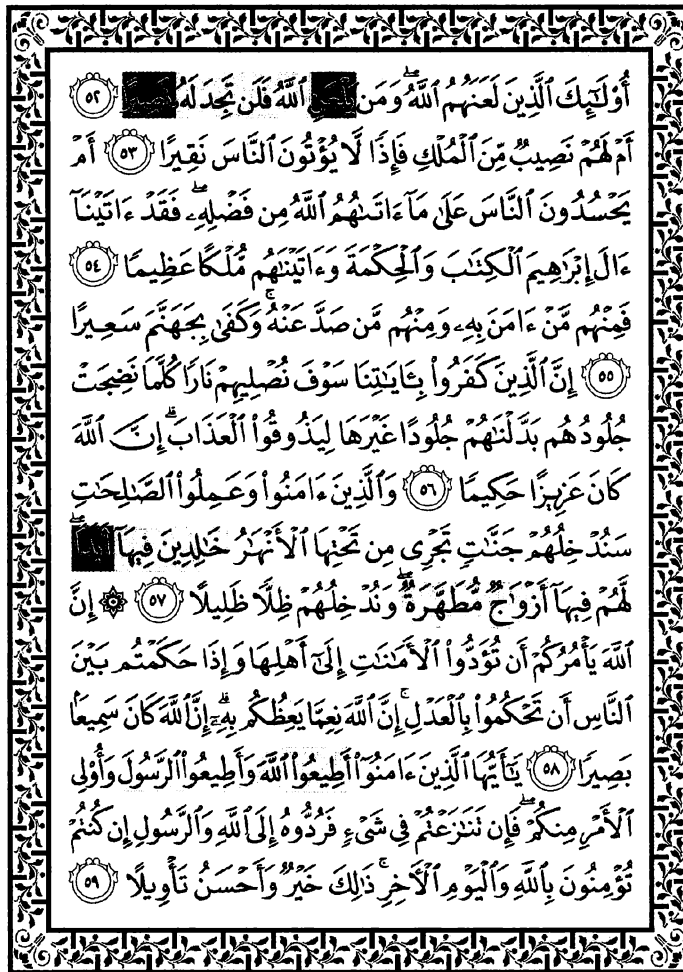 أُوْلَٰٓئِكَ ٱلَّذِينَ لَعَنَهُمُ ٱللَّهُۖ وَمَن ٱللَّهُ فَلَن تَجِدَ لَهُۥ ٥٢
أَمۡ لَهُمۡ نَصِيبٞ مِّنَ ٱلۡمُلۡكِ فَإِذٗا لَّا يُؤۡتُونَ ٱلنَّاسَ نَقِيرًا ٥٣ أَمۡ
يَحۡسُدُونَ ٱلنَّاسَ عَلَىٰ مَآ ءَاتَىٰهُمُ ٱللَّهُ مِن فَضۡلِهِۦۖ فَقَدۡ ءَاتَيۡنَآ
ءَالَ إِبۡرَٰهِيمَ ٱلۡكِتَٰبَ وَٱلۡحِكۡمَةَ وَءَاتَيۡنَٰهُم مُّلۡكًا عَظِيمٗا ٥٤
فَمِنۡهُم مَّنۡ ءَامَنَ بِهِۦ وَمِنۡهُم مَّن صَدَّ عَنۡهُۚ وَكَفَىٰ بِجَهَنَّمَ سَعِيرًا
٥٥ إِنَّ ٱلَّذِينَ كَفَرُواْ بِـَٔايَٰتِنَا سَوۡفَ نُصۡلِيهِمۡ نَارٗا كُلَّمَا نَضِجَتۡ
جُلُودُهُم بَدَّلۡنَٰهُمۡ جُلُودًا غَيۡرَهَا لِيَذُوقُواْ ٱلۡعَذَابَۗ إِنَّ ٱللَّهَ
كَانَ عَزِيزًا حَكِيمٗا ٥٦ وَٱلَّذِينَ ءَامَنُواْ وَعَمِلُواْ ٱلصَّٰلِحَٰتِ
سَنُدۡخِلُهُمۡ جَنَّٰتٖ تَجۡرِي مِن تَحۡتِهَا ٱلۡأَنۡهَٰرُ خَٰلِدِينَ فِيهَآ
لَّهُمۡ فِيهَآ أَزۡوَٰجٞ مُّطَهَّرَةٞۖ وَنُدۡخِلُهُمۡ ظِلّٗا ظَلِيلًا ٥٧ ۞ إِنَّ
ٱللَّهَ يَأۡمُرُكُمۡ أَن تُؤَدُّواْ ٱلۡأَمَٰنَٰتِ إِلَىٰٓ أَهۡلِهَا وَإِذَا حَكَمۡتُم بَيۡنَ
ٱلنَّاسِ أَن تَحۡكُمُواْ بِٱلۡعَدۡلِۚ إِنَّ ٱللَّهَ نِعِمَّا يَعِظُكُم بِهِۦٓۗ إِنَّ ٱللَّهَ كَانَ سَمِيعَۢا
بَصِيرٗا ٥٨ يَٰٓأَيُّهَا ٱلَّذِينَ ءَامَنُوٓاْ أَطِيعُواْ ٱللَّهَ وَأَطِيعُواْ ٱلرَّسُولَ وَأُوْلِي
ٱلۡأَمۡرِ مِنكُمۡۖ فَإِن تَنَٰزَعۡتُمۡ فِي شَيۡءٖ فَرُدُّوهُ إِلَى ٱللَّهِ وَٱلرَّسُولِ إِن كُنتُمۡ
تُؤۡمِنُونَ بِٱللَّهِ وَٱلۡيَوۡمِ ٱلۡأٓخِرِۚ ذَٰلِكَ خَيۡرٞ وَأَحۡسَنُ تَأۡوِيلًا ٥٩